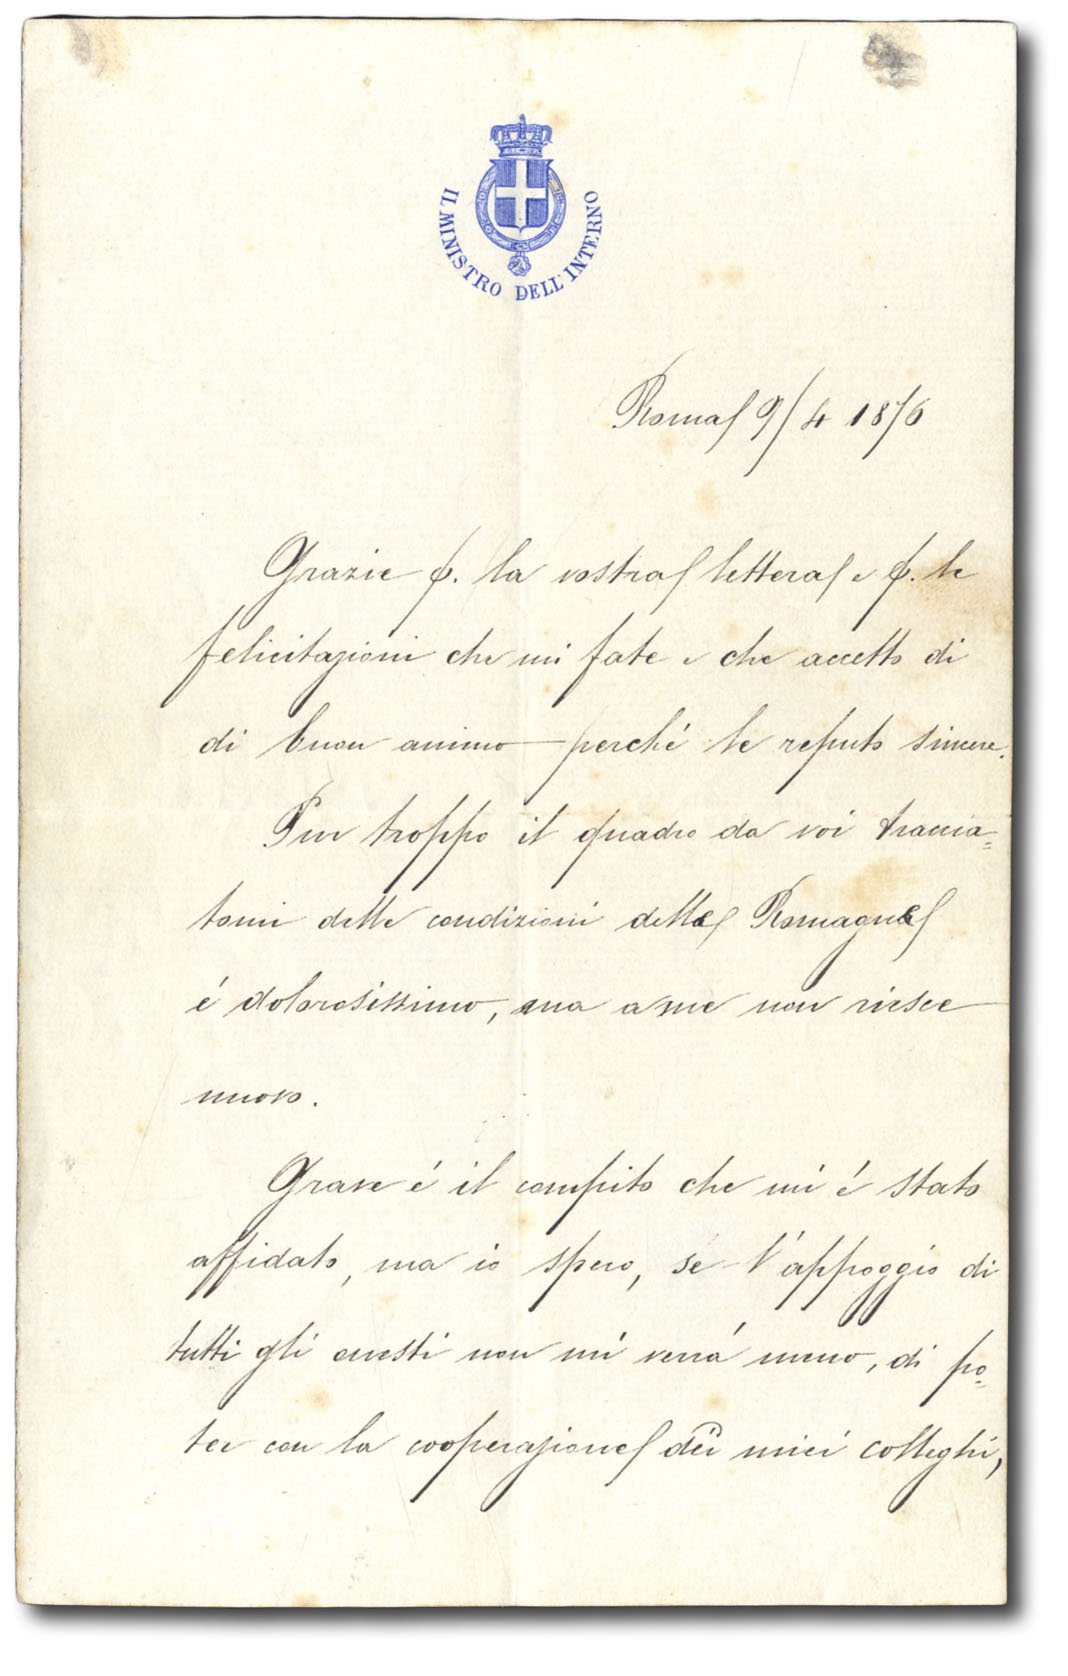 IL MINISTRO DELL'INTERNO
Roma 9/4 1876
Grazie p. la vostra lettera e p. le
felicitazioni che mi fate e che accetto di
di buon animo perché le reputo sincere.
Pur troppo il quadro da voi traccia=
tomi delle condizioni delle Romagne
é dolorosissimo, ma a me non riesce
nuovo.
Grave é il compito che mi é stato
affidato, ma io spero, se l'appoggio di
tutti gli onesti non mi verrá meno, di po=
ter con la cooperazione dei miei colleghi,